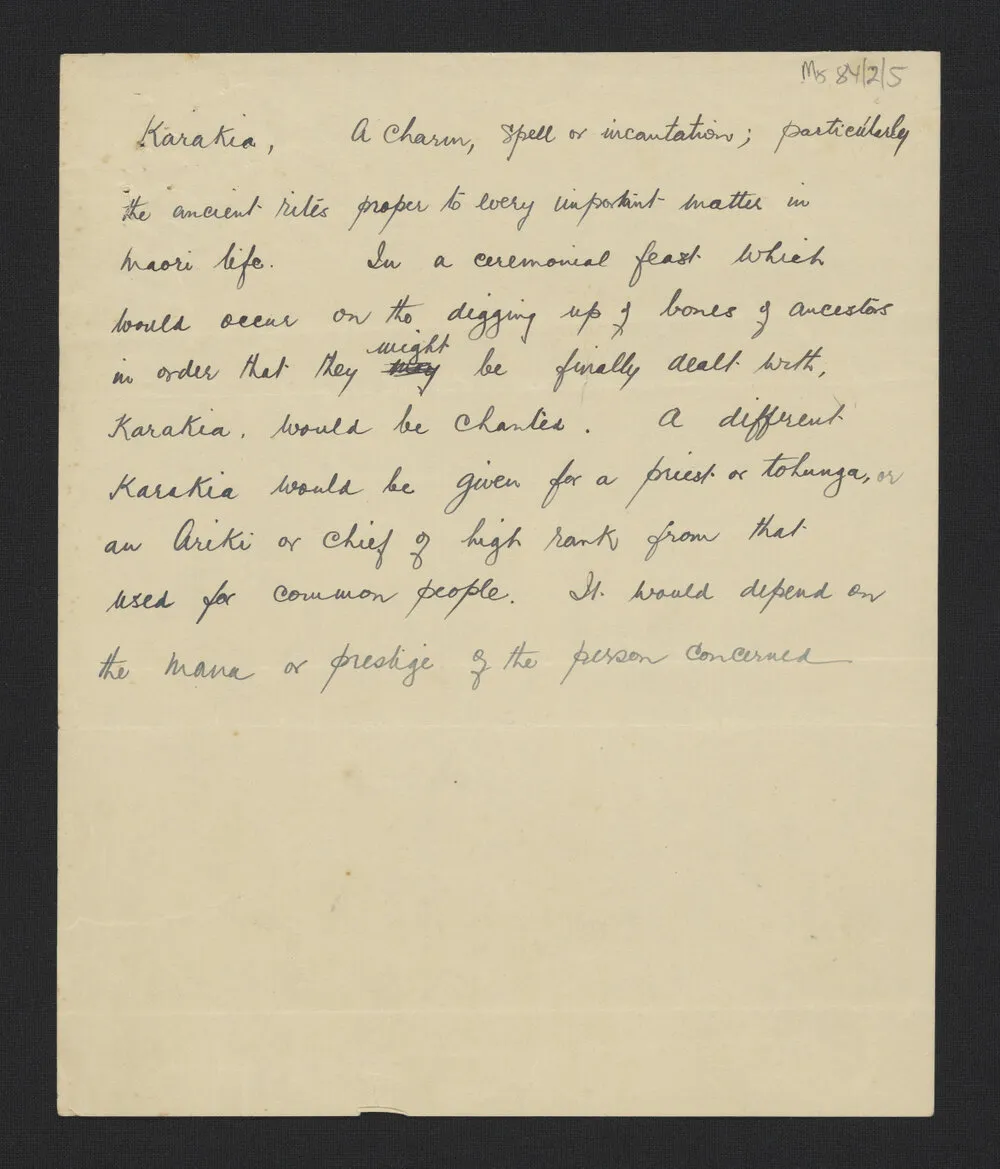 Ms 84/2/5
Karakia, A Charm, spell or incantation; particularly
the ancient rites proper to every important matter in
Maori life. In a ceremonial feast which
would occur on the digging up of bones of ancestors
might
in order that they may be finally dealt with,
Karakia. would be chanted. A different
Karakia would be given for a priest or tohunga, or
an Ariki or chief of high rank from that
used for common people. It would depend on
the mana or prestige of the person concerned